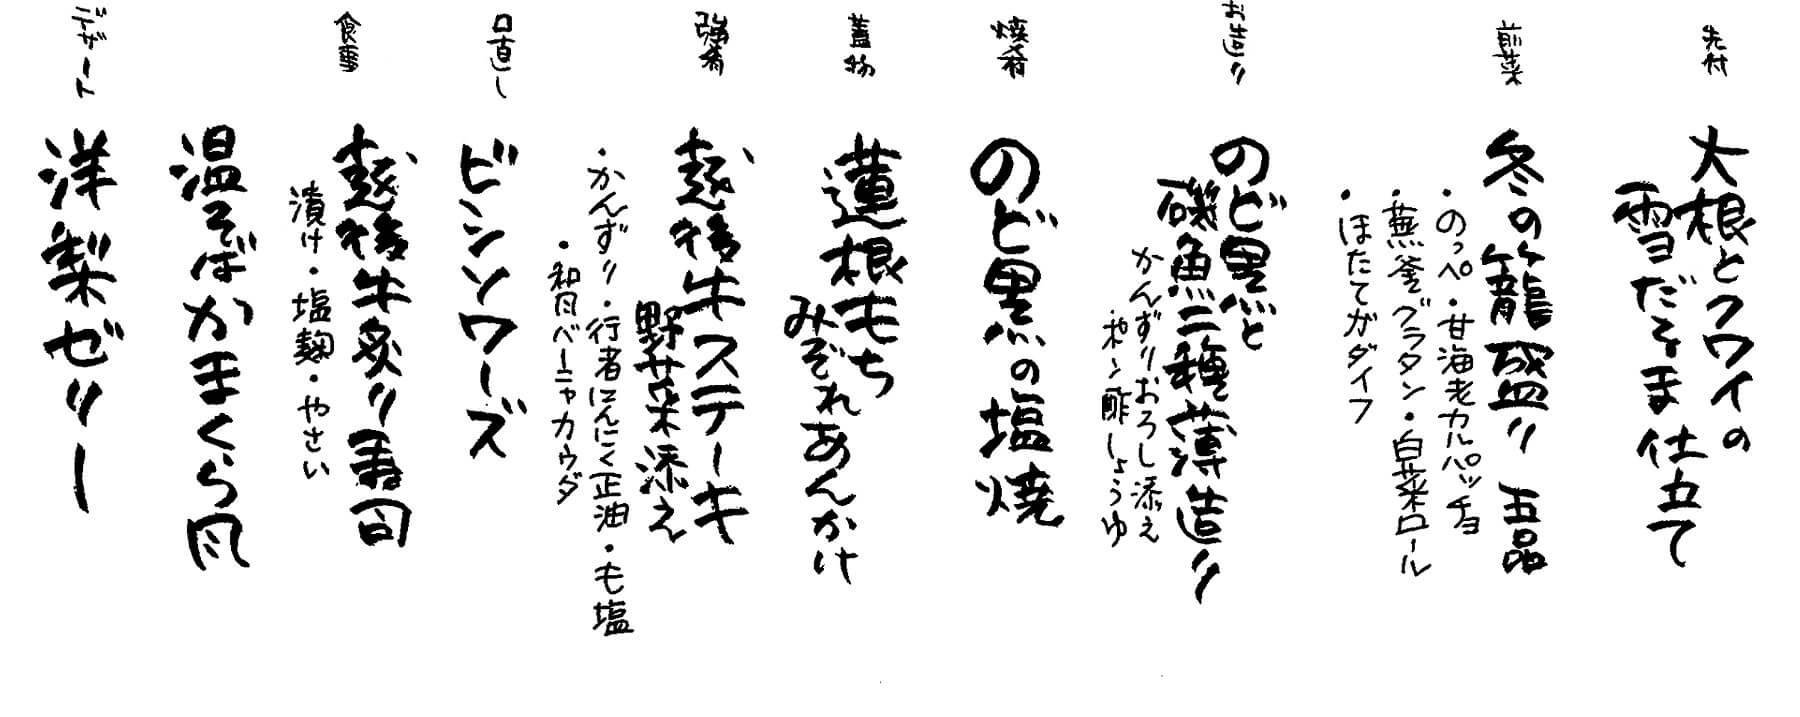 先付
大根とクワイの
雪だるま仕立て
前菜
冬の籠盛り 五品
・のっぺ・甘海老カルパッチョ
・蕪釜グラタン・白菜ロール
・ほたてカダイフ
お造り
のど黒と
磯魚二種薄造り
かんずりおろし添え
やゝ酢しょうゆ
焼肴
のど黒の塩焼
蓋物
蓮根もち
みぞれあんかけ
強肴
越後牛ステーキ
野菜添え
・かんずり・行者にんにく正油・も塩
・和風バーニャカウダ
口直し
ビンソワーズ
食事
越後牛炙り寿司
漬け・塩麹・やさい
温そばかまくら風
デザート
洋梨ゼリー